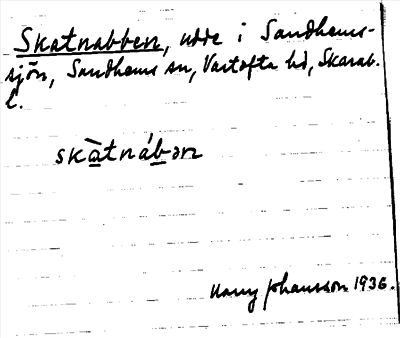 Skatnabben, udde i Sandhems-
sjön, Sandhems sn, Vartofta hd, Skarab.
l.
skàtnábən
Harry Johansson 1936.